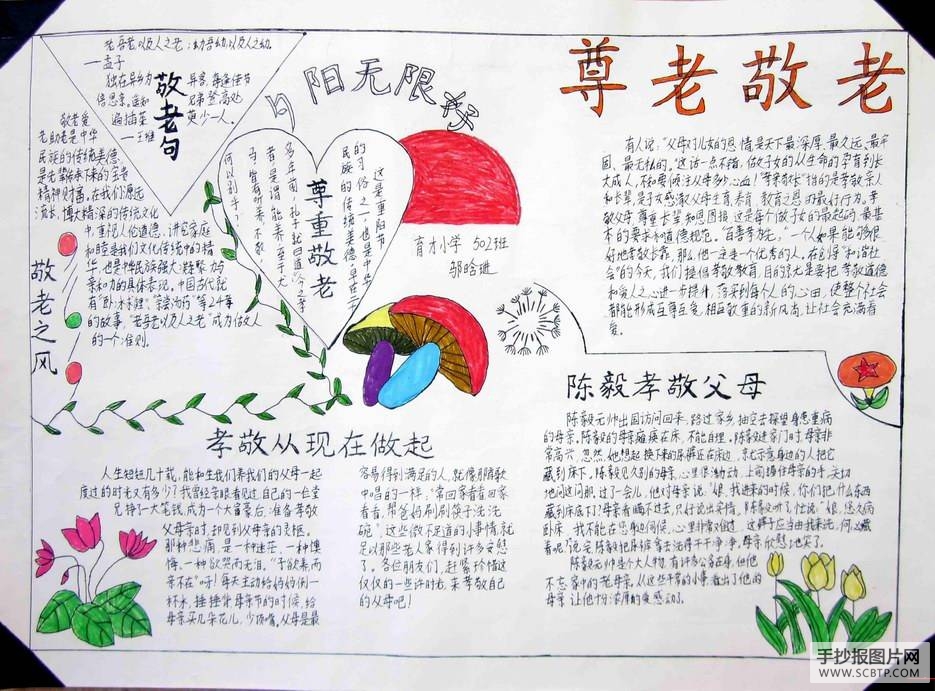 老吾老,以及人之老;幼吾幼,以及人之幼。
—孟子
敬老句
独在异乡为异客,每逢佳节
倍思亲。遥知兄弟登高处,
遍插茱萸少一人。
—王维
夕阳无限好
尊老敬老
敬老之风
敬老爱
老助老是中华
民族的传统美德,
是先辈传承下来的宝贵
精神财富。在我们源远
流长、博大精深的传统文化
中,重视人伦道德、讲究家庭
和睦是我们文化传统中的精
华,也是中华民族强大凝聚力与
亲和力的具体表现,中国古代就
有“卧冰求鲤”、“亲尝汤药”等24孝
的故事,“老吾老以及人之老”成为做人
的一个准则。
尊重敬老
这是重阳节
的习俗之一,也是中华
民族的传统美德,早在二千
多年前,孔子就曰道:“今之孝
者,是谓能养。至于犬
马,皆有所养。不敬,
何以别乎?”
育才小学 502班
邬晗琎
有人说:“父母对儿女的恩情是天下最深厚、最久远、最牢
固、最无私的。”这话一点不错。做子女的从生命的孕育到长
大成人,不知要倾注父母多少心血!“尊亲敬长”指的是孝敬亲人
和长辈,是子女感激父母生育、养育、教育之恩的最好行为。孝
敬父母,尊重长辈,知恩图报,这是每个做子女的最起码、最基
本的要求和道德规范。“百善孝为先”,一个人如果能够很
好地孝敬长辈,那么,他一定是一个优秀的人。在已将“和谐社
会”的今天,我们提倡孝敬教育,目的就是要把孝敬道德
和爱人之心进一步提升,落实到每个人的心田,使整个社会
都能形成互尊互爱,相互敬重的新风尚,让社会充满着
爱。
孝敬从现在做起
人生短短几十载,能和生我们养我们的父母一起
度过的时光又有多少?我曾经亲眼看见过自己的一位堂
兄挣了一大笔钱,成为一个大富豪后,准备孝敬
父母亲时,却见到父母亲的灵柩。
那种悲痛,是一种迷茫,一种懊
悔,一种欲哭而无泪。“子欲养而
亲不在”呀!每天主动给妈妈倒一
杯水,捶捶背,母亲节的时候,给
母亲买几朵花儿,少顶嘴。父母是最
容易得到满足的人,就像那首歌
中唱的一样,“常回家看看回家
看看,帮爸妈刷刷筷子洗洗
碗”,这些微不足道的小事情就
足以那些老人家得到许多安慰
了。各位朋友们,赶紧珍惜这
仅仅的一些许时光,来孝敬自己
的父母吧!
陈毅孝敬父母
陈毅元帅出国访问回来,路过家乡,抽空去探望身患重病
的母亲。陈毅的母亲瘫痪在床,不能自理。陈毅进家门时,母亲非
常高兴,忽然,她想起换下来的尿裤还在床边,就示意身边的人把它
藏到床下。陈毅见久别的母亲,心里很激动,上前握住母亲的手,关切
地问这问那。过了一会儿,他对母亲说:“娘,我进来的时候,你们把什么东西
藏到床底下了?母亲看瞒不过去,只好说出实情,陈毅听了,忙说:“娘,您久病
卧床,我不能在您身边伺候,心里非常难过,这裤子应当由我来洗,何必藏
着呢。”说完,陈毅把尿裤拿去洗得干干净净,母亲欣慰地笑了。
陈毅元帅是个大人物,有许多公务在身,但他
不忘家中的老母亲,从这些平常的小事,道出了他的
母亲,让他十分浓厚的爱感动了。
手抄报图片网
WWW.SCBTP.COM